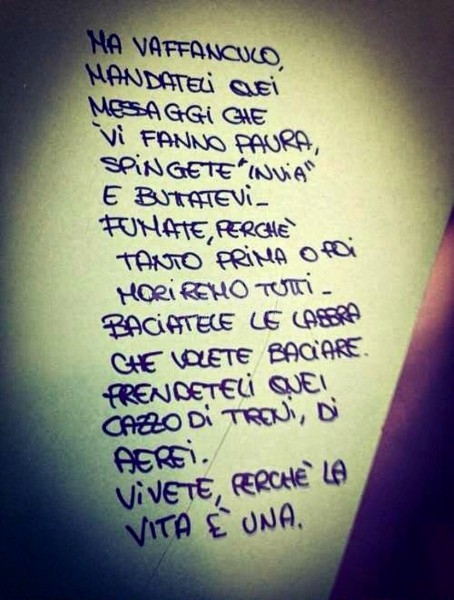 MA VAFFANCULO,
MANDATELI QUEI
MESSAGGI CHE
VI FANNO PAURA,
SPINGETE "INVIA"
E BUTTATEVI_
FUMATE, PERCHÈ
TANTO PRIMA O POI
MORIREMO TUTTI_
BACIATELE LE LABBRA
CHE VOLETE BACIARE.
PRENDETELI QUEI
CAZZO DI TRENI, DI
AEREI.
VIVETE, PERCHÈ LA
VITA È UNA.